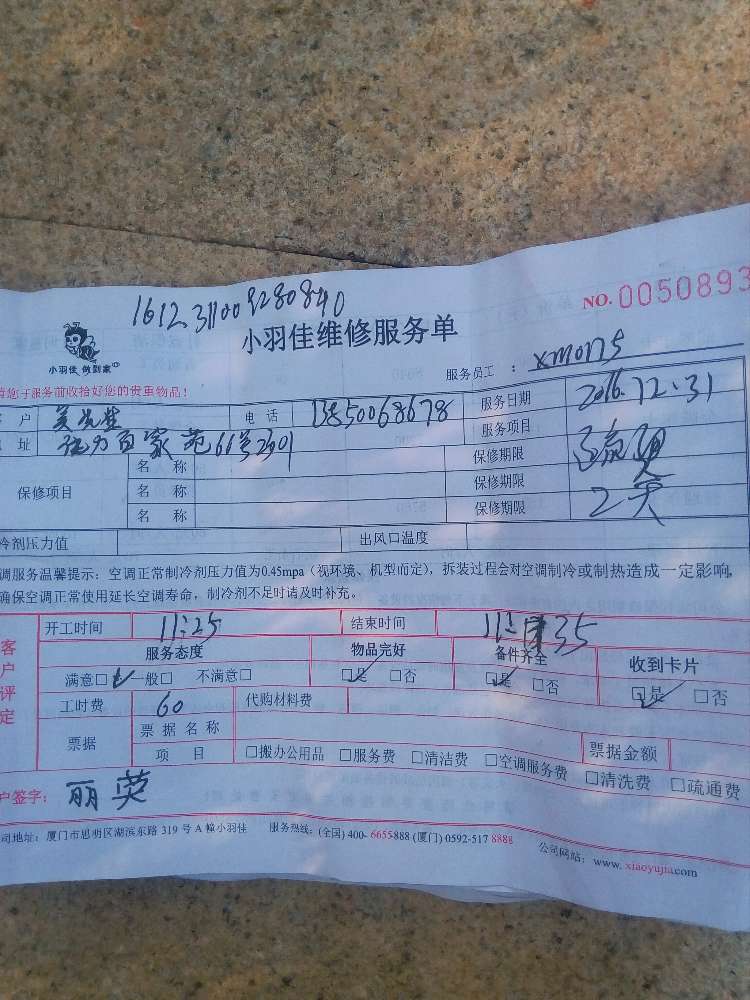 1612311009280840
NO. 0050893
小羽佳 做到家
小羽佳维修服务单
请您于服务前收拾好您的贵重物品!
服务员工 : xm0175
户 吴先生 电 话 13850068678 服务日期 2016.12.31
址 百家苑66号2301 服务项目
保修项目 名 称 保修期限
名 称 保修期限
名 称 保修期限 2天
冷剂压力值 出风口温度
调服务温馨提示: 空调正常制冷剂压力值为0.45mpa (视环境、机型而定), 拆装过程会对空调制冷或制热造成一定影响,
确保空调正常使用延长空调寿命, 制冷剂不足时请及时补充。
客户评定
开工时间 11:25 结束时间 11:35
服务态度 物品完好 备件齐全 收到卡片
满意□ 一般□ 不满意□ □是 □否 □是 □否 □是 □否
工时费 60 代购材料费
票据 票 据 名 称 票据金额
项 目 □搬办公用品 □服务费 □清洁费 □空调服务费 □清洗费 □疏通费
户签字: 丽英
司地址: 厦门市思明区湖滨东路 319 号 A 幢小羽佳 服务热线: (全国) 400- 6655888 (厦门) 0592-517 8888 公司网站: www. xiaoyujia.com